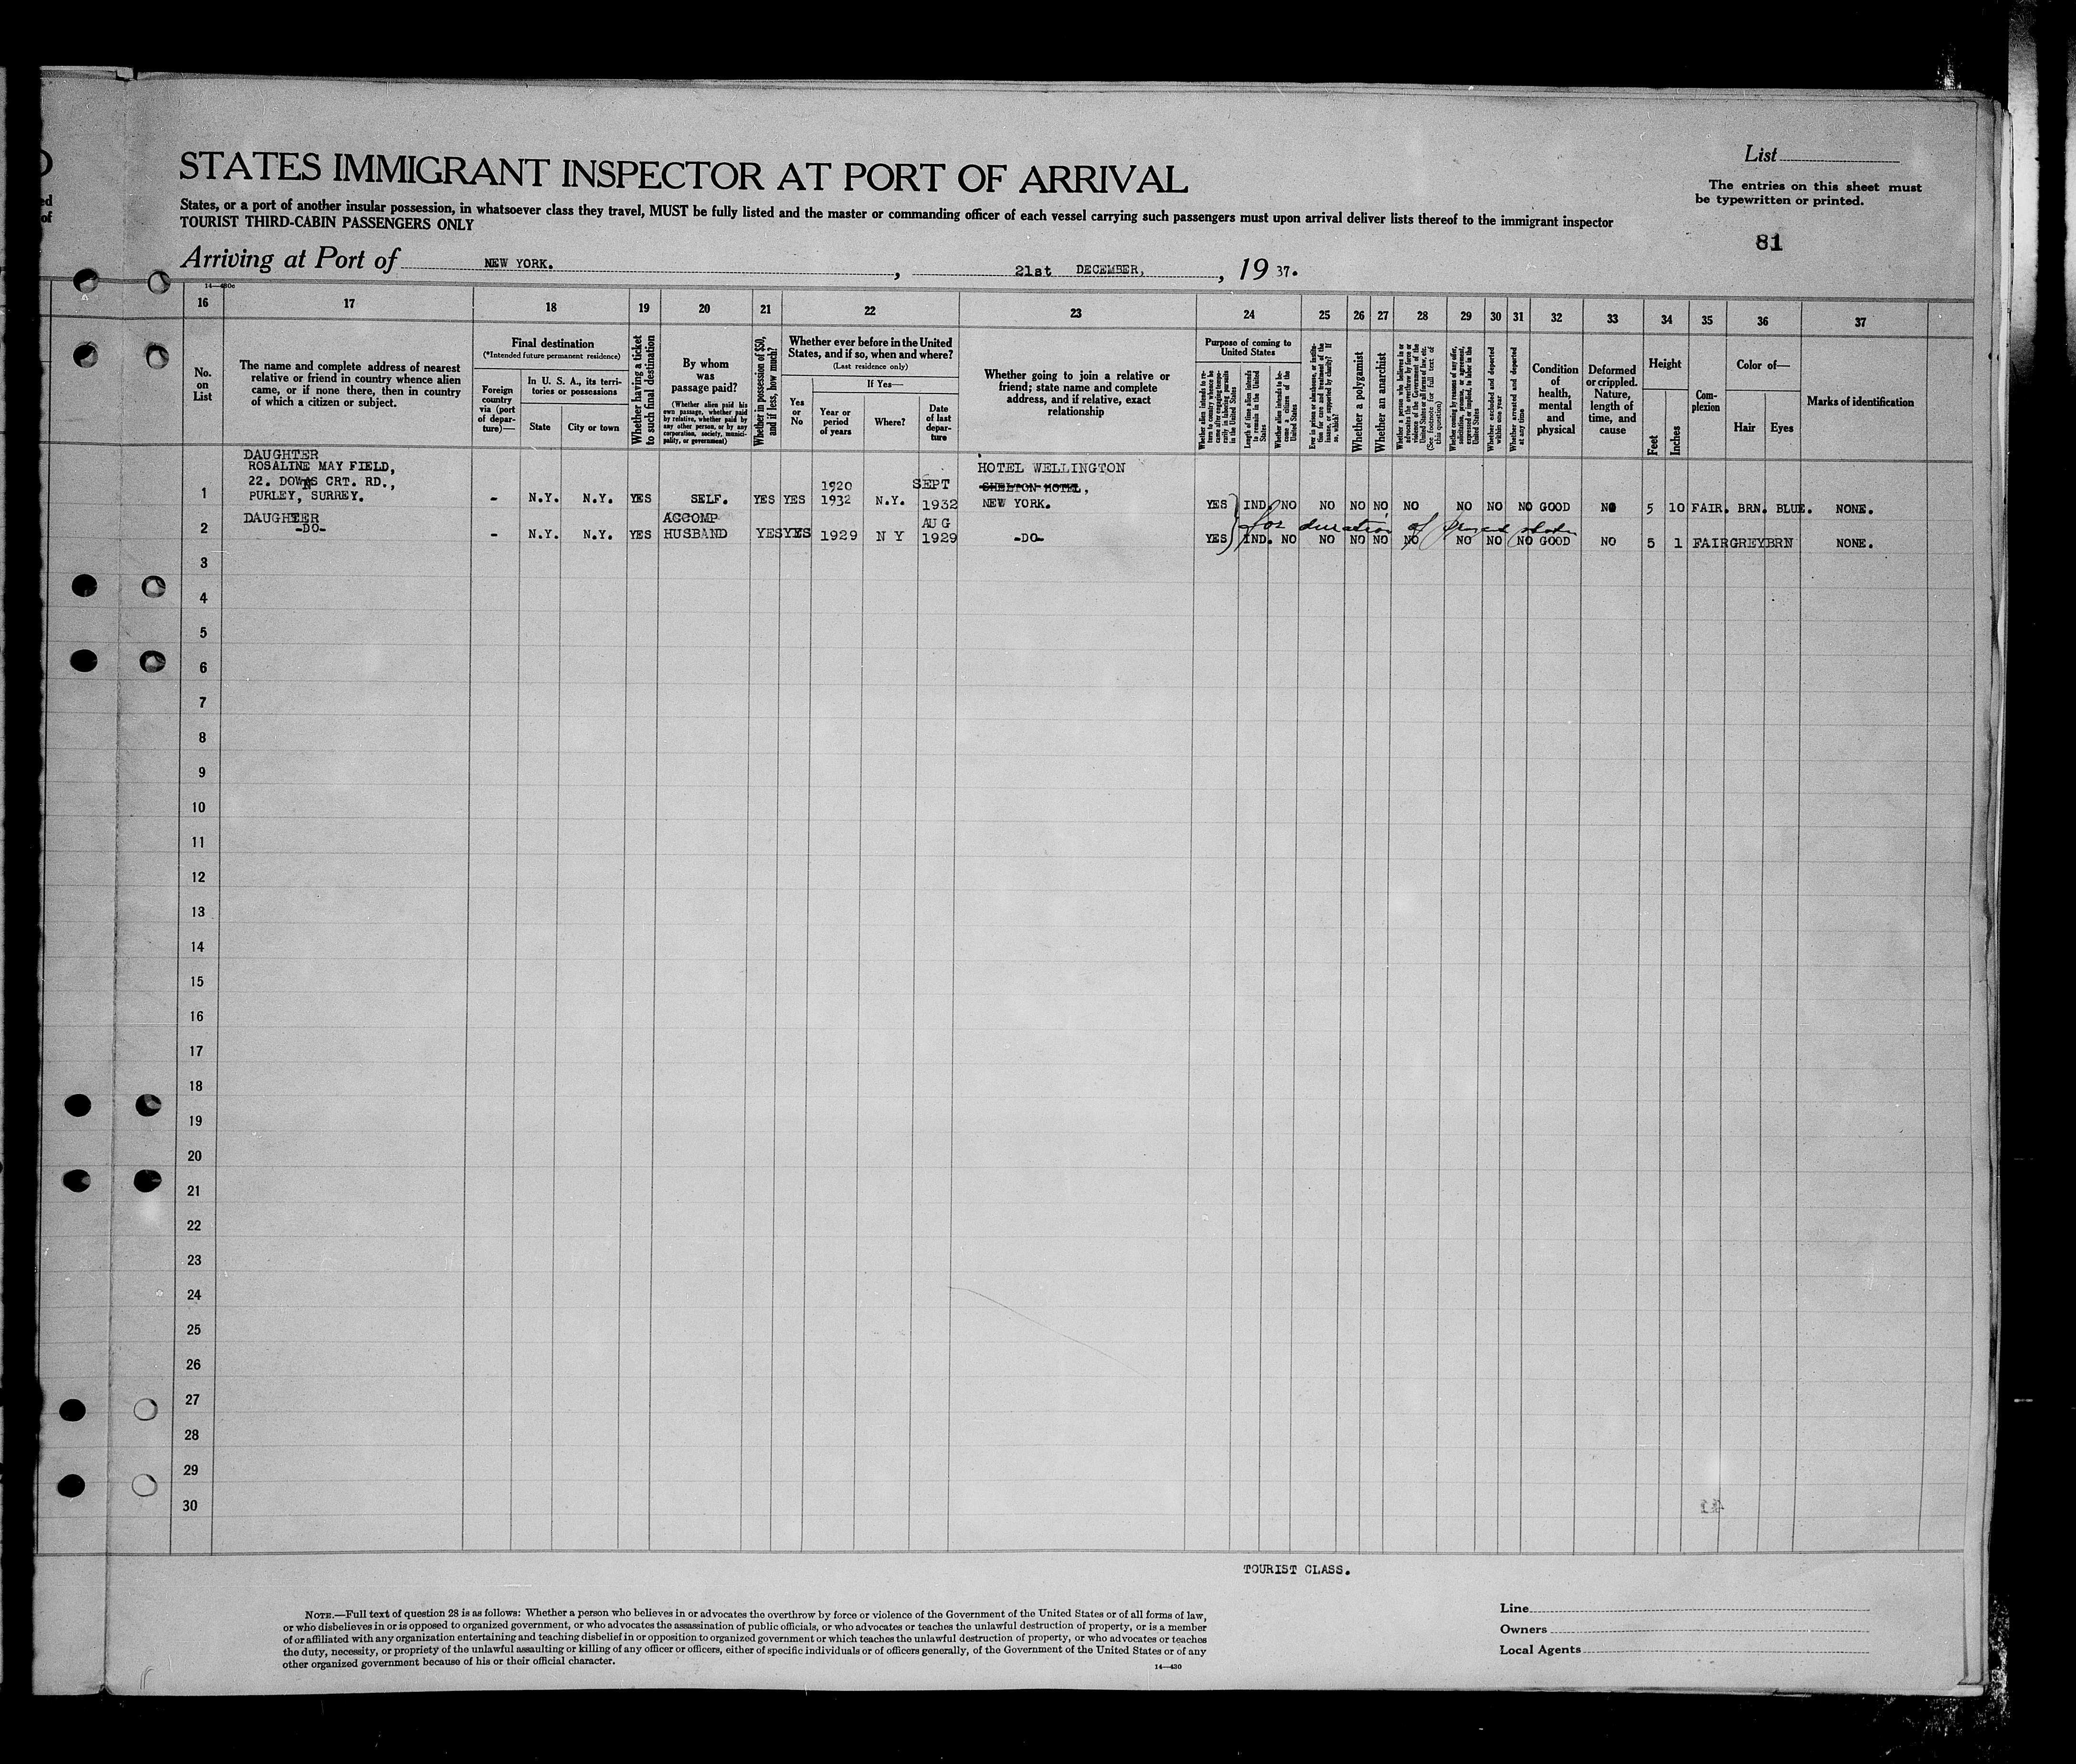 ed
of
List
STATES IMMIGRANT INSPECTOR AT PORT OF ARRIVAL
The entries on this sheet must
be typewritten or printed.
States, or a port of another insular possession, in whatsoever class they travel, MUST be fully listed and the master or commanding officer of each vessel carrying such passengers must upon arrival deliver lists thereof to the immigrant inspector
TOURIST THIRD-CABIN PASSENGERS ONLY
81
Arriving at Port of NEW YORK. , 21st DECEMBER, , 19 37.
16 17 18 19 20 21 22 23 24 25 26 27 28 29 30 31 32 33 34 35 36 37
No.
on
List
The name and complete address of nearest
relative or friend in country whence alien
came, or if none there, then in country
of which a citizen or subject.
Final destination
(*Intended future permanent residence)
Foreign
country
via (port
of depar-
ture)—
In U. S. A., its terri-
tories or possessions
State
City or town
Whether having a ticket
to such final destination
By whom
was
passage paid?
(Whether alien paid his
own passage, whether paid
by relative, whether paid by
any other person, or by any
corporation, society, munici-
pality, or government)
Whether in possession of $50,
and if less, how much?
Whether ever before in the United
States, and if so, when and where?
(Last residence only)
Yes
or
No
If Yes—
Year or
period
of years
Where?
Date
of last
depar-
ture
Whether going to join a relative or
friend; state name and complete
address, and if relative, exact
relationship
Purpose of coming to
United States
Length of time alien intends
to remain in the United
States
Whether alien intends to be-
come a citizen of the
United States
Whether a polygamist
Whether an anarchist
(See footnote for full text of
this question)
Whether excluded and deported
within one year
Whether arrested and deported
at any time
Condition
of
health,
mental
and
physical
Deformed
or crippled.
Nature,
length of
time, and
cause
Height
Feet
Inches
Com-
plexion
Color of—
Hair
Eyes
Marks of identification
DAUGHTER
ROSALINE MAY FIELD,
22. DOWNS CRT. RD.,
PURLEY, SURREY.
1 - N.Y. N.Y. YES SELF. YES YES 1920 1932 N.Y. SEPT 1932
HOTEL WELLINGTON
SHELTON HOTEL,
NEW YORK.
YES IND. NO NO NO NO NO NO NO NO GOOD NO 5 10 FAIR. BRN. BLUE. NONE.
for duration of
DAUGHTER
2 -DO- - N.Y. N.Y. YES ACCOMP HUSBAND YES YES 1929 N Y AUG 1929 -DO- YES IND. NO NO NO NO NO NO NO NO GOOD NO 5 1 FAIR GREY BRN NONE.
3
4
5
6
7
8
9
10
11
12
13
14
15
16
17
18
19
20
21
22
23
24
25
26
27
28
29
30
TOURIST CLASS.
NOTE.—Full text of question 28 is as follows: Whether a person who believes in or advocates the overthrow by force or violence of the Government of the United States or of all forms of law,
or who disbelieves in or is opposed to organized government, or who advocates the assassination of public officials, or who advocates or teaches the unlawful destruction of property, or is a member
of or affiliated with any organization entertaining and teaching disbelief in or opposition to organized government or which teaches the unlawful destruction of property, or who advocates or teaches
the duty, necessity, or propriety of the unlawful assaulting or killing of any officer or officers, either of specific individuals or of officers generally, of the Government of the United States or of any
other organized government because of his or their official character.
14—430
Line
Owners
Local Agents